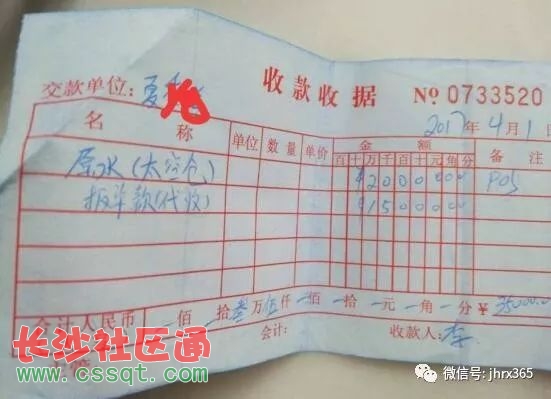 收款收据 № 0733520
交款单位：夏
2017年4月1
名称 单位 数量 单价 金额 备注
百十万千百十元角分
原水（太空仓） ¥20000000 POS
扳羊款（代收） ¥1500000
合计人民币 佰 拾叁万伍仟 佰 拾 元 角 分 ¥35000.0
会计： 收款人：李
长沙社区通
www.cssqt.com
微信号: jhrx365